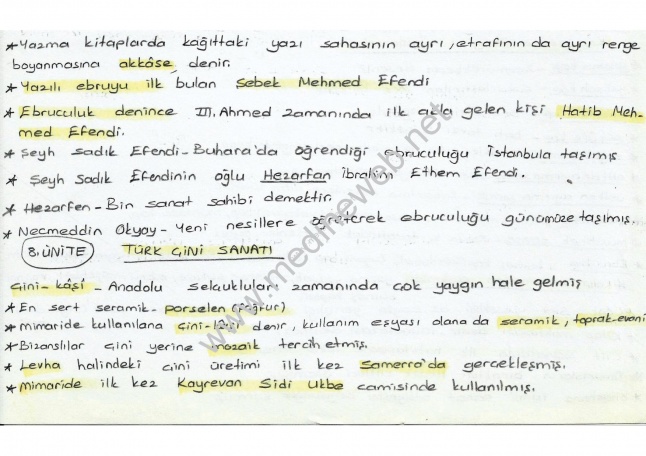 * Yazma kitaplarda kâğıttaki yazı sahasının ayrı, etrafının da ayrı renge
boyanmasına akkâse denir.
* Yazılı ebruyu ilk bulan Şebek Mehmed Efendi
* Ebruculuk denince III. Ahmed zamanında ilk akla gelen kişi Hatib Meh-
med Efendi.
* Şeyh Sadık Efendi - Buhara'da öğrendiği ebruculuğu İstanbula taşımış
* Şeyh Sadık Efendinin oğlu Hezarfan İbrahim Ethem Efendi.
* Hezarfen - Bin sanat sahibi demektir.
* Necmeddin Okyay - Yeni nesillere öğreterek ebruculuğu günümüze taşımış.
8. ÜNİTE TÜRK ÇİNİ SANATI
Çini - kâşî - Anadolu selçukluları zamanında çok yaygın hale gelmiş
* En sert seramik - porselen (fağfur)
* mimaride kullanılana çini - kâşi denir, kullanım eşyası olana da seramik, toprak-evani
* Bizanslılar çini yerine mozaik tercih etmiş.
* Levha halindeki çini üretimi ilk kez Samerra'da gerçekleşmiş.
* Mimaride ilk kez Kayrevan Sidi Ukbe camisinde kullanılmış.
www.medineweb.net